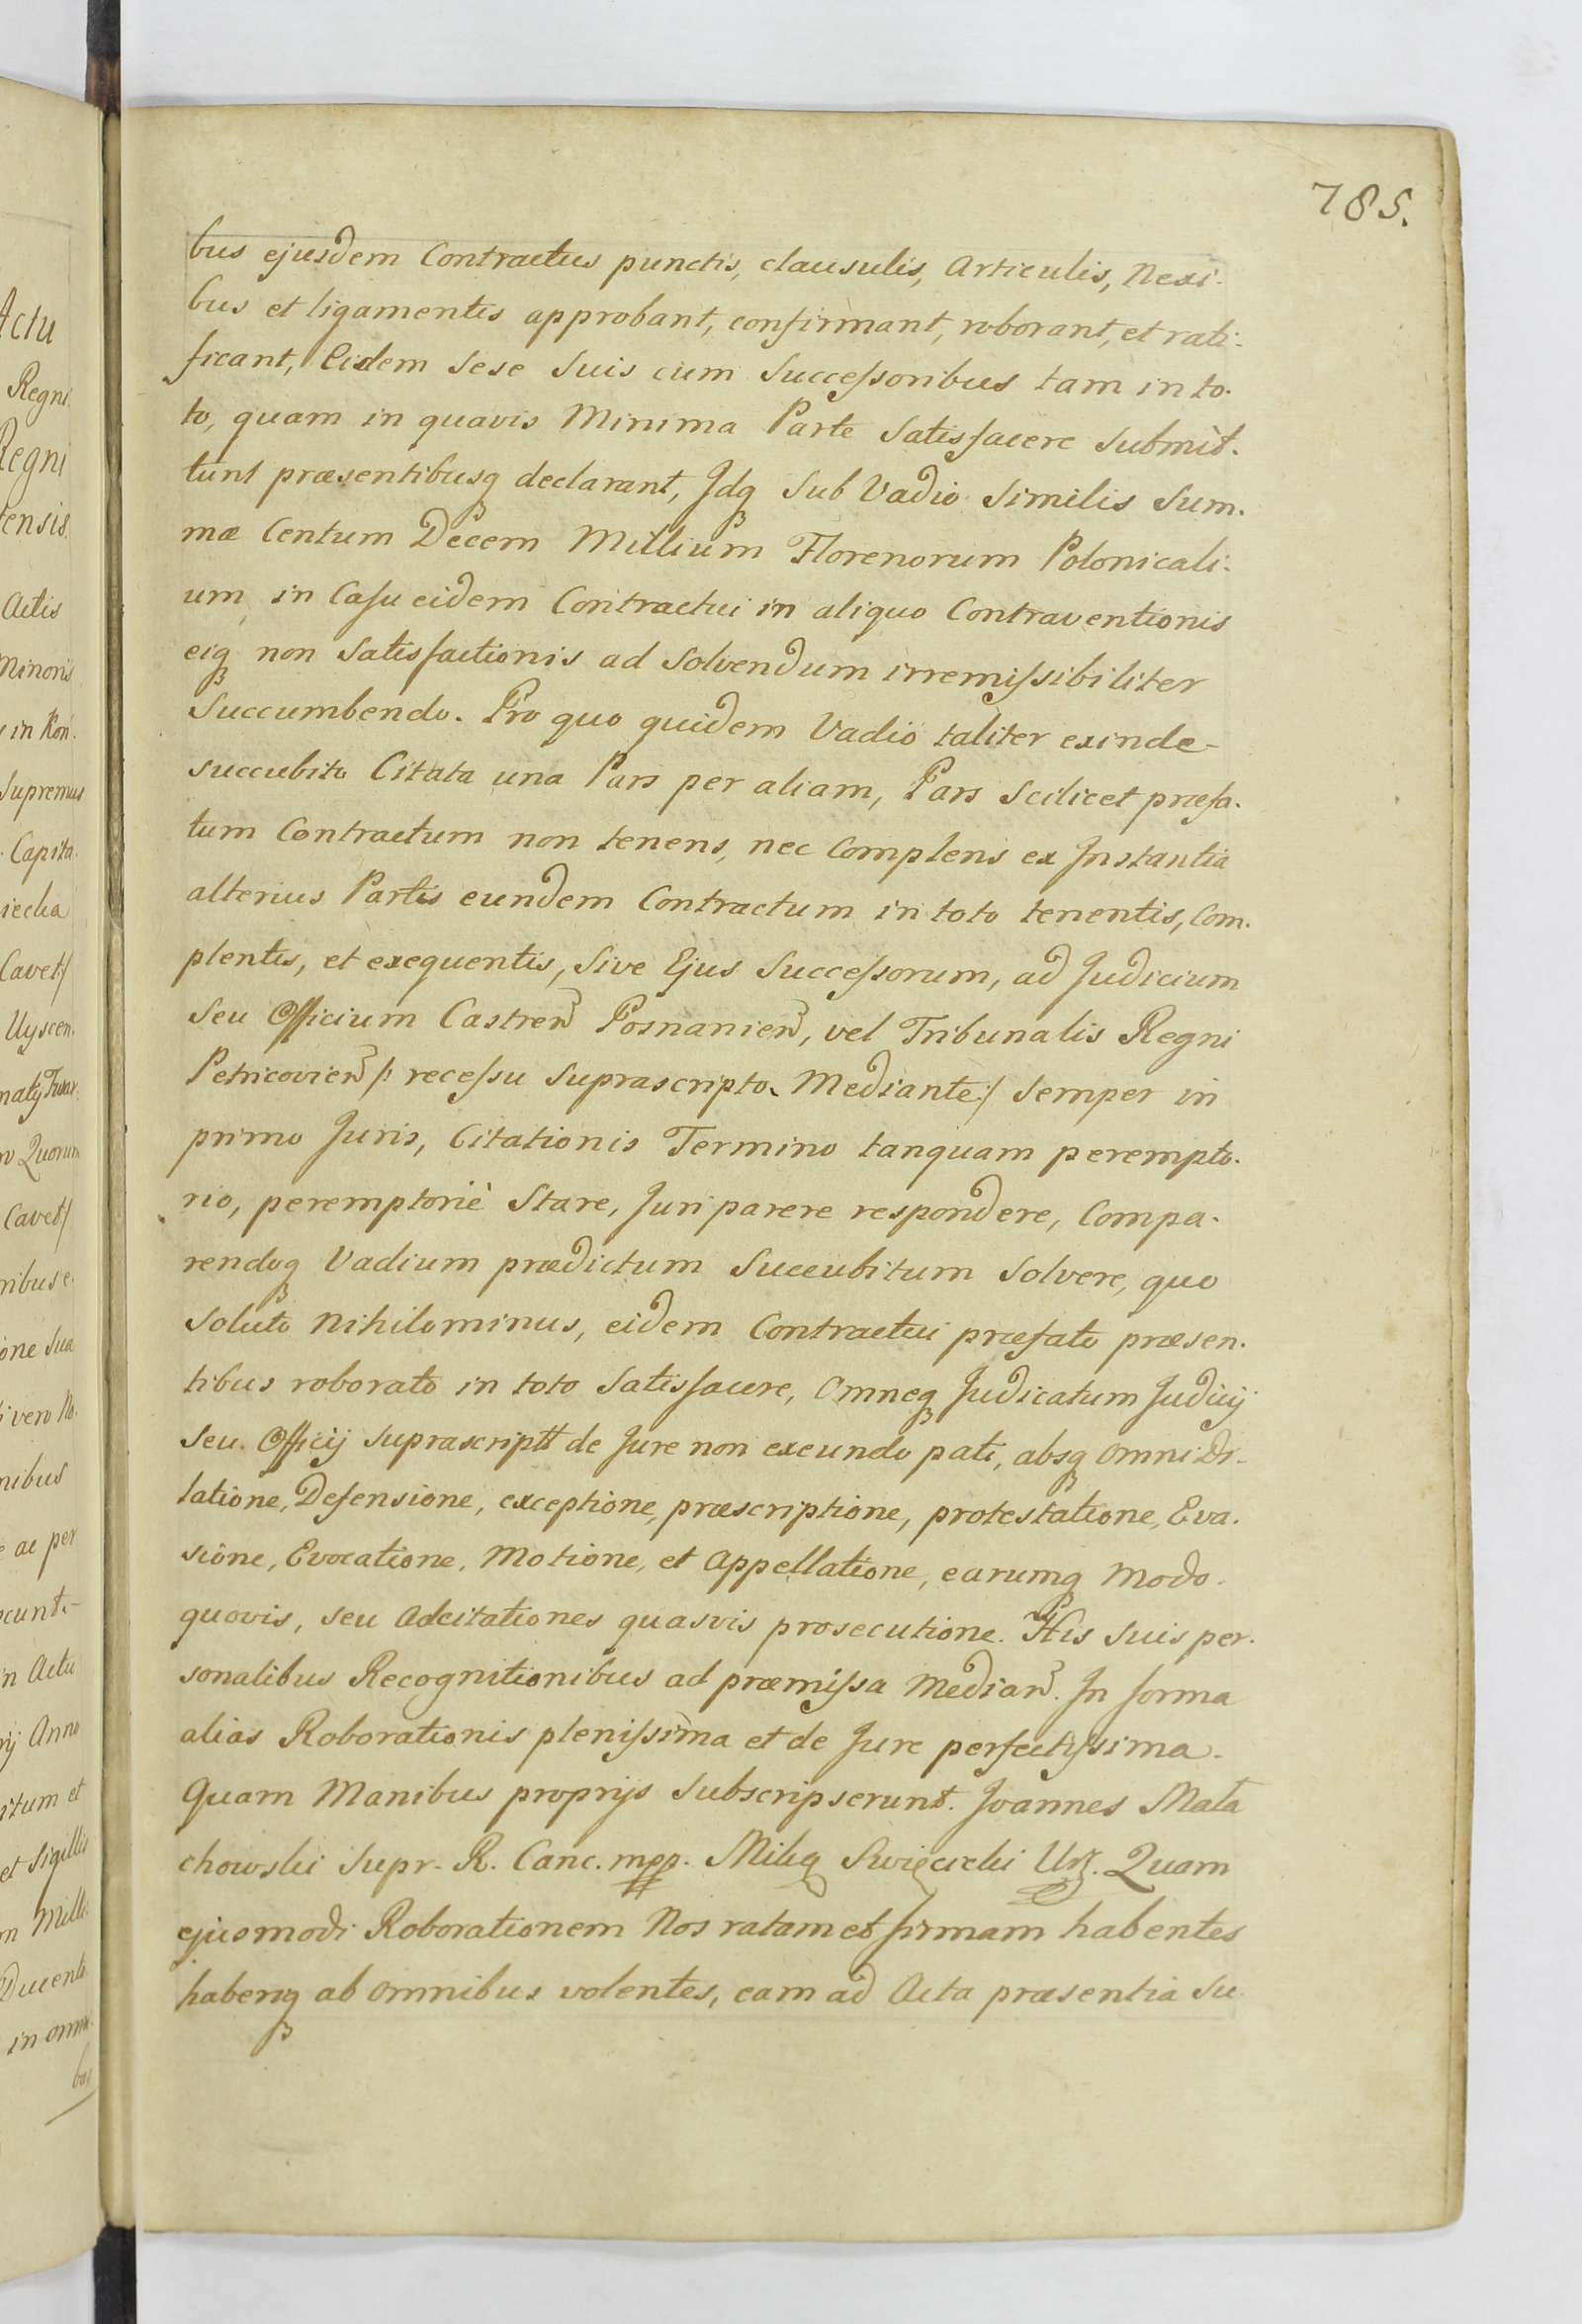 785.
bus ejusdem Contractus punctis, clausulis, Articulis, Nexi-
bus et ligamentis approbant, confirmant, roborant, et rati-
ficant, Eidem sese suis cum Successoribus tam in to-
to, quam in quavis Minima Parte Satisfacere Submit-
tunt præsentibusq declarant, Jdq Sub Vadio Similis Sum-
mæ Centum Decem Millium Florenorum Polonicali-
um in Casu eidem Contractui in aliquo Contraventionis
eiq non Satisfactionis ad Solvendum irremissibiliter
Succumbendo. Pro quo quidem Vadio taliter exinde
succubito Citata una Pars per aliam, Pars Scilicet præfa-
tum Contractum non tenens, nec Complens ex Jnstantia
alterius Partis eundem Contractum in toto tenentis, Com-
plentis, et exequentis, Sive Ejus Successorum, ad Judicium
Seu Officium Castren Posnanien, vel Tribunalis Regni
Petricovien /: recessu Suprascripto Mediante :/ Semper in
primo Juris, Citationis Termino tanquam perempto-
rio, peremptoriè Stare, Juri parere respondere, Compa-
rendoq Vadium prædictum Succubitum Solvere, quo
Soluto Nihilominus, eidem Contractui præfato præsen-
tibus roborato in toto Satisfacere, Omneq Judicatum Judicij
Seu Officij Suprascriptt de Jure non exeundo pati, absq omni Di-
latione, Defensione, exceptione, præscriptione, protestatione, Eva-
sione, Evocatione, Motione, et Appellatione, earumq Modo
quovis, seu Adcitationes quasvis prosecutione. His Suis per-
sonalibus Recognitionibus ad præmissa Median. Jn forma
alias Roborationis plenissima et de Jure perfectissima.
Quam Manibus proprijs Subscripserunt. Joannes Mala
chowski Supr. R. Canc. mpp. Mikq Swięcicki Urz. Quam
ejusmodi Roborationem Nos ratam et firmam habentes
haberiq ab omnibus volentes, eam ad Acta præsentia Su